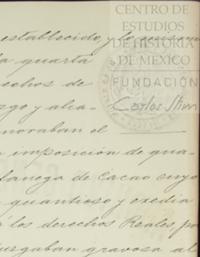 CENTRO DE
ESTUDIOS
DE HISTORIA
DE MEXICO
FUNDACIÓN
Carlos Slim
establecido, y lo
la quarta
echos de
zgo y alca-
noraban el
imposicion de qua-
fanega de Cacao cuyo
quantioso y exedia
los derechos Reales pa
uzgaban gravosa al